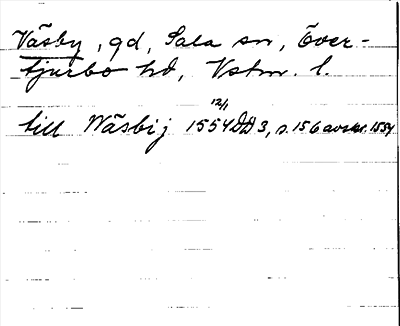 Väsby, gd, Sala sn, Över-
tjurbo hd, Vstm. l.
till Wäsbij 1554 12/1 DD 3, s. 156 avskr. 1554